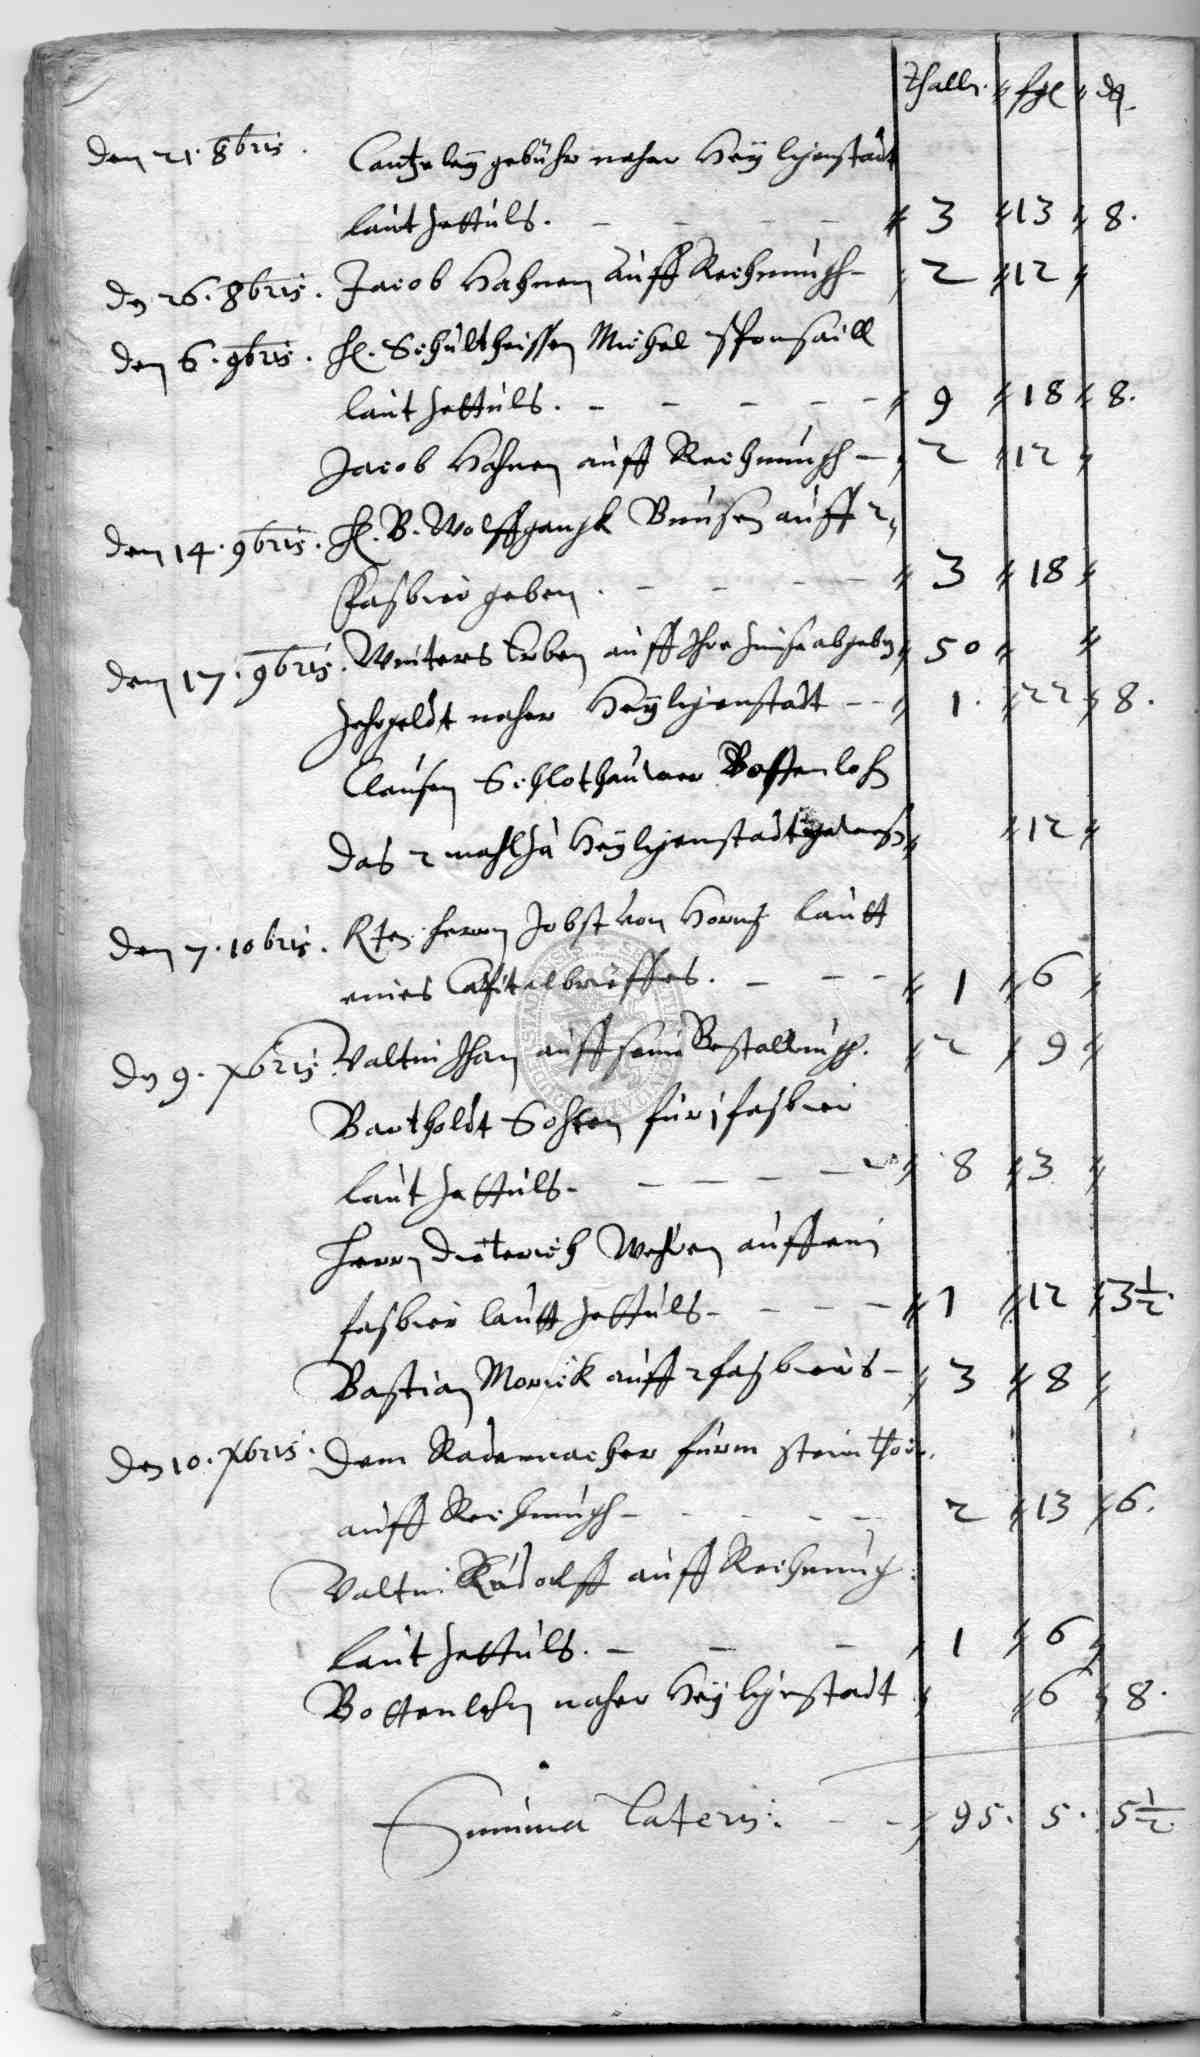 thall. fgl d₰.
den 21. 8bris. Cantzeley gebühr naher Heyligenstadt
laut Zettuls. - - - - 3 13 8.
dn 26. 8bris. Jacob Hahnen auff Rechnungh - 2 12
den 6. 9bris. H. Schultheissen Michel Sponsaill
laut Zettuls. - - - - - 9 18 8.
Jacob Hahnen auff Rechnungh - 2 12
den 14. 9bris. H. B. Wolffgangk auff 2
Fasbier geben. - - - - 3 18
den 17. 9bris. Erben auff Ihre Zinse abgeben 50
Zehrgeldt naher Heyligenstadt - - 1. 22 8.
Clausen Schlothauwer Bottenlohn
das 2 mahl zu Heyligenstadt gewesen 12
den 7. 10bris. herrn Jobst von Hornß lautt
eines Capitalbrieffes. - - - 1 6
dn 9. Xbris. Valtin Jhan auff seine Bestallungh. 2 9
Bartholdt Sohten für 1 fasbier
laut Zettuls - - - - - 8 3
Herrn Dieterich Wehren auff ein
fasbier lautt Zettuls - - - - 1 12 3½.
Bastian Morick auff 2 fasbiers - 3 8
den 10. Xbris. Dem Rademacher fürm steinthor.
auff Rechnungh - - - - - 2 13 6.
Valtin Rudolff auff Rechnungh.
laut Zettuls. - - - 1 6
Bottenlohn naher Heyligenstadt 6 8.
Summa lateris: - - 95. 5. 5½.